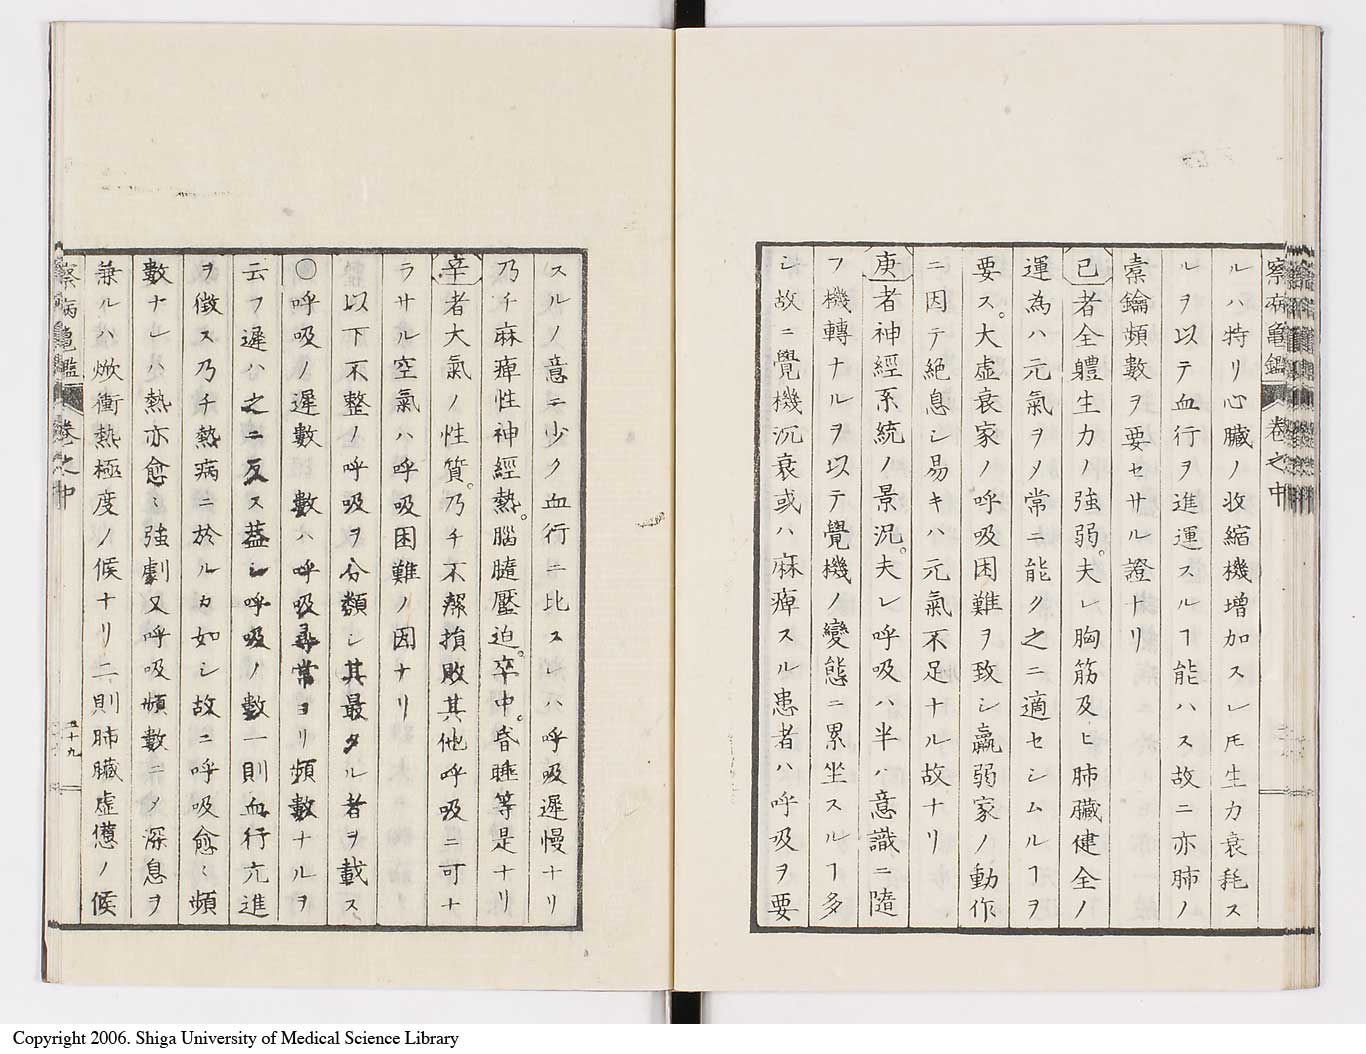 察病亀鑑 卷之中
ルハ持リ心臓ノ收縮機増加スレ𪜈生力衰耗ス
ルヲ以テ血行ヲ進運スルヿ能ハス故ニ亦肺ノ
橐鑰頻數ヲ要セサル證トナリ
己者全軆生力ノ強弱。夫レ胸筋及ヒ肺臓健全ノ
運為ハ元氣ヲ〆常ニ能ク之ニ適セシムルヿヲ
要ス。大虚衰家ノ呼吸困難ヲ致シ羸弱家ノ動作
ニ因テ絶息シ易キハ元氣不足ナル故ナリ
庚者神經系統ノ景況。夫レ呼吸ハ半ハ意識ニ隨
フ機轉ナルヲ以テ覺機ノ變態ニ累坐スルヿ多
シ故ニ覺機沉衰或ハ麻痺スル患者ハ呼吸ヲ要
スルノ意ニ少ク血行ニ比スレハ呼吸遲慢ナリ
乃チ麻痺性神經熱。腦髓壓迫。卒中。昏睡等是ナリ
辛者大氣ノ性質。乃チ不潔損敗其他呼吸ニ可ナ
ラサル空氣ハ呼吸困難ノ因ナリ
以下不整ノ呼吸ヲ分類シ其最タル者ヲ載ス
○呼吸ノ遲數 數ハ呼吸尋常ヨリ頻數ナルヲ
云フ遲ハ之ニ反ス葢シ呼吸ノ數一則血行亢進
ヲ徴ス乃チ熱病ニ於ルカ如シ故ニ呼吸愈〻頻
數ナレハ熱亦愈〻強劇又呼吸頻數ニ〆深息ヲ
兼ルハ焮衝熱極度ノ候ナリ二則肺臓虚憊ノ候
察病亀鑑 卷之中
五十九
Copyright 2006. Shiga University of Medical Science Library